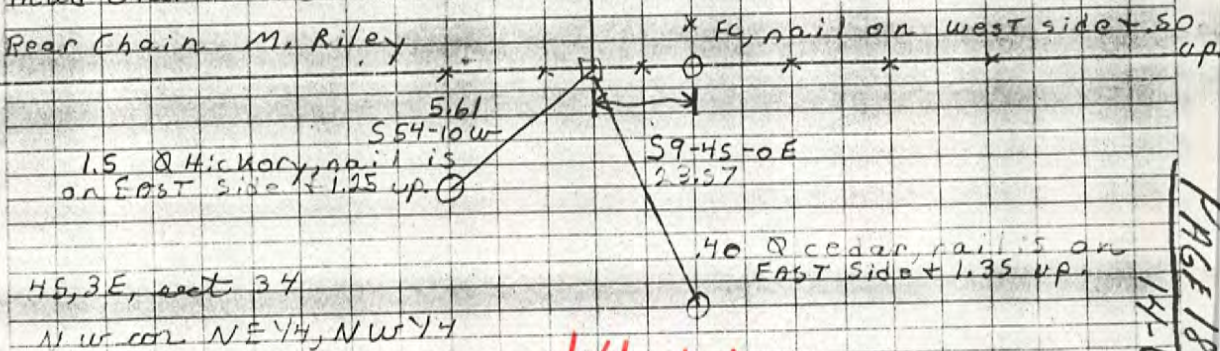 Rear Chain M. Riley
FC, nail on west side + .50
up
5.61
S 54-10 W
S9-45-0E
23.57
1.5 Q Hickory, nail is
on EAST side + 1.25 up.
.40 Q cedar, nail is on
EAST Side + 1.35 up.
4S, 3E, sect 34
NW cor NE 1/4, NW 1/4
PAGE 18